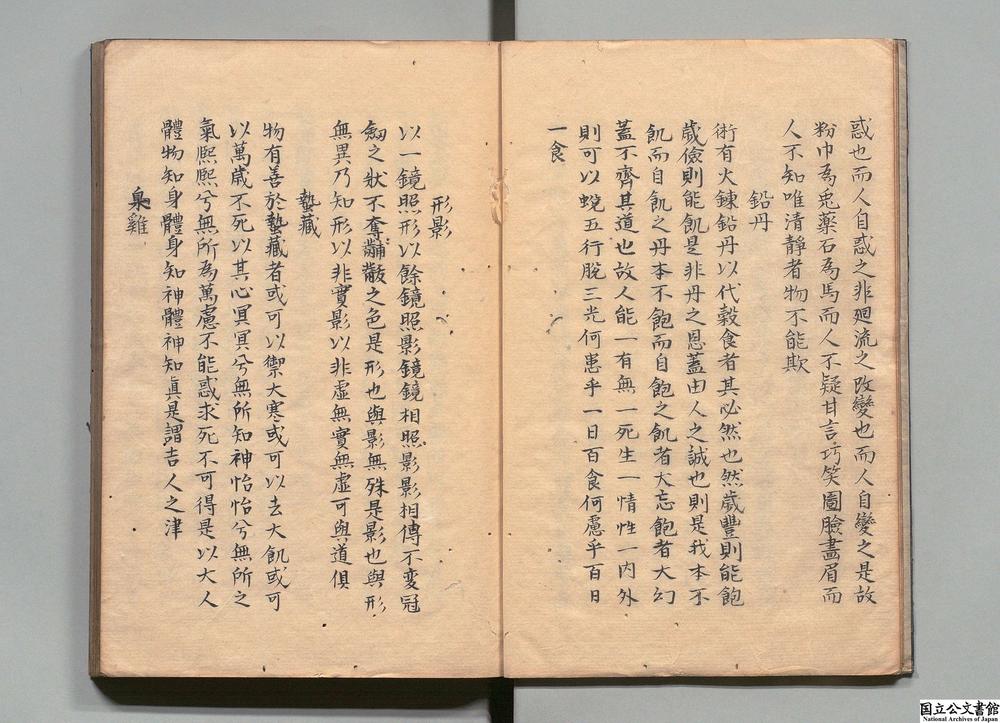 惑也而人自惑之非廻流之改變也而人自變之是故
粉巾為兎藥石為馬而人不疑甘言巧笑圖臉畫眉而
人不知唯清靜者物不能欺
鉛丹
術有火鍊鉛丹以代穀食者其必然也然歲豐則能飽
歲儉則能飢是非丹之恩蓋由人之誠也則是我本不
飢而自飢之丹本不飽而自飽之飢者大忘飽者大幻
蓋不齊其道也故人能一有無一死生一情性一內外
則可以蛻五行脫三光何患乎一日百食何慮乎百日
一食
形影
以一鏡照形以餘鏡照影鏡鏡相照影影相傳不變冠
劒之狀不奪黼黻之色是形也與影無殊是影也與形
無異乃知形以非實影以非虛無實無虛可與道俱
蟄藏
物有善於蟄藏者或可以禦大寒或可以去大飢或可
以萬歲不死以其心冥冥兮無所知神怡怡兮無所之
氣熙熙兮無所為萬慮不能惑求死不可得是以大人
體物知身體身知神體神知真是謂吉人之津
梟雞
国立公文書館
National Archives of Japan